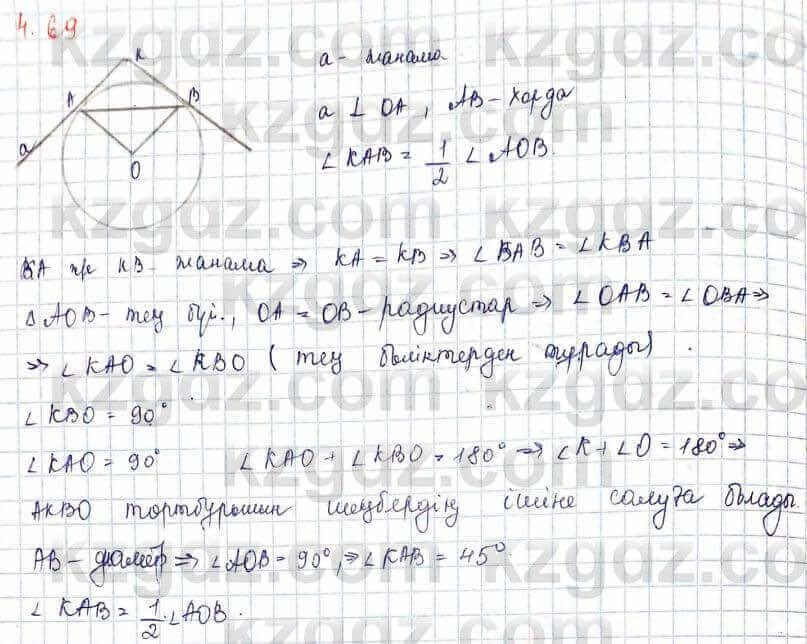 4.69
K
a - жанама
A
B
a ⊥ OA, AB - хорда
a
O
∠KAB = 1/2 ∠AOB.
KA және KB - жанама ⇒ KA = KB ⇒ ∠KAB = ∠KBA
△AOB - тең бүй., OA = OB - радиустар ⇒ ∠OAB = ∠OBA ⇒
⇒ ∠KAO = ∠KBO (тең бөліктерден тұрады).
∠KBO = 90°
∠KAO = 90° ∠KAO + ∠KBO = 180° ⇒ ∠K + ∠O = 180° ⇒
AKBO төртбұрышын шеңбердің ішіне салуға болады.
AB - диаметр ⇒ ∠AOB = 90°, ⇒ ∠KAB = 45°.
∠KAB = 1/2 ∠AOB.
kzgdz.com